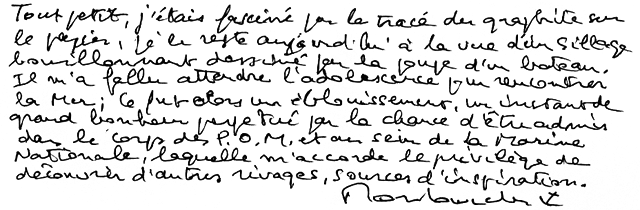 Tout petit, j'étais fasciné par le tracé du graphite sur
le papier, je le reste aujourd'hui à la vue d'un sillage
bouillonnant dessiné par la proue d'un bateau.
Il m'a fallu attendre l'adolescence pour rencontrer
la Mer; ce fut alors un éblouissement, un instant de
grand bonheur perpétué par la chance d'être admis
dans le corps des P.O.M. et au sein de la Marine
Nationale, laquelle m'accorde le privilège de
découvrir d'autres rivages, sources d'inspiration.